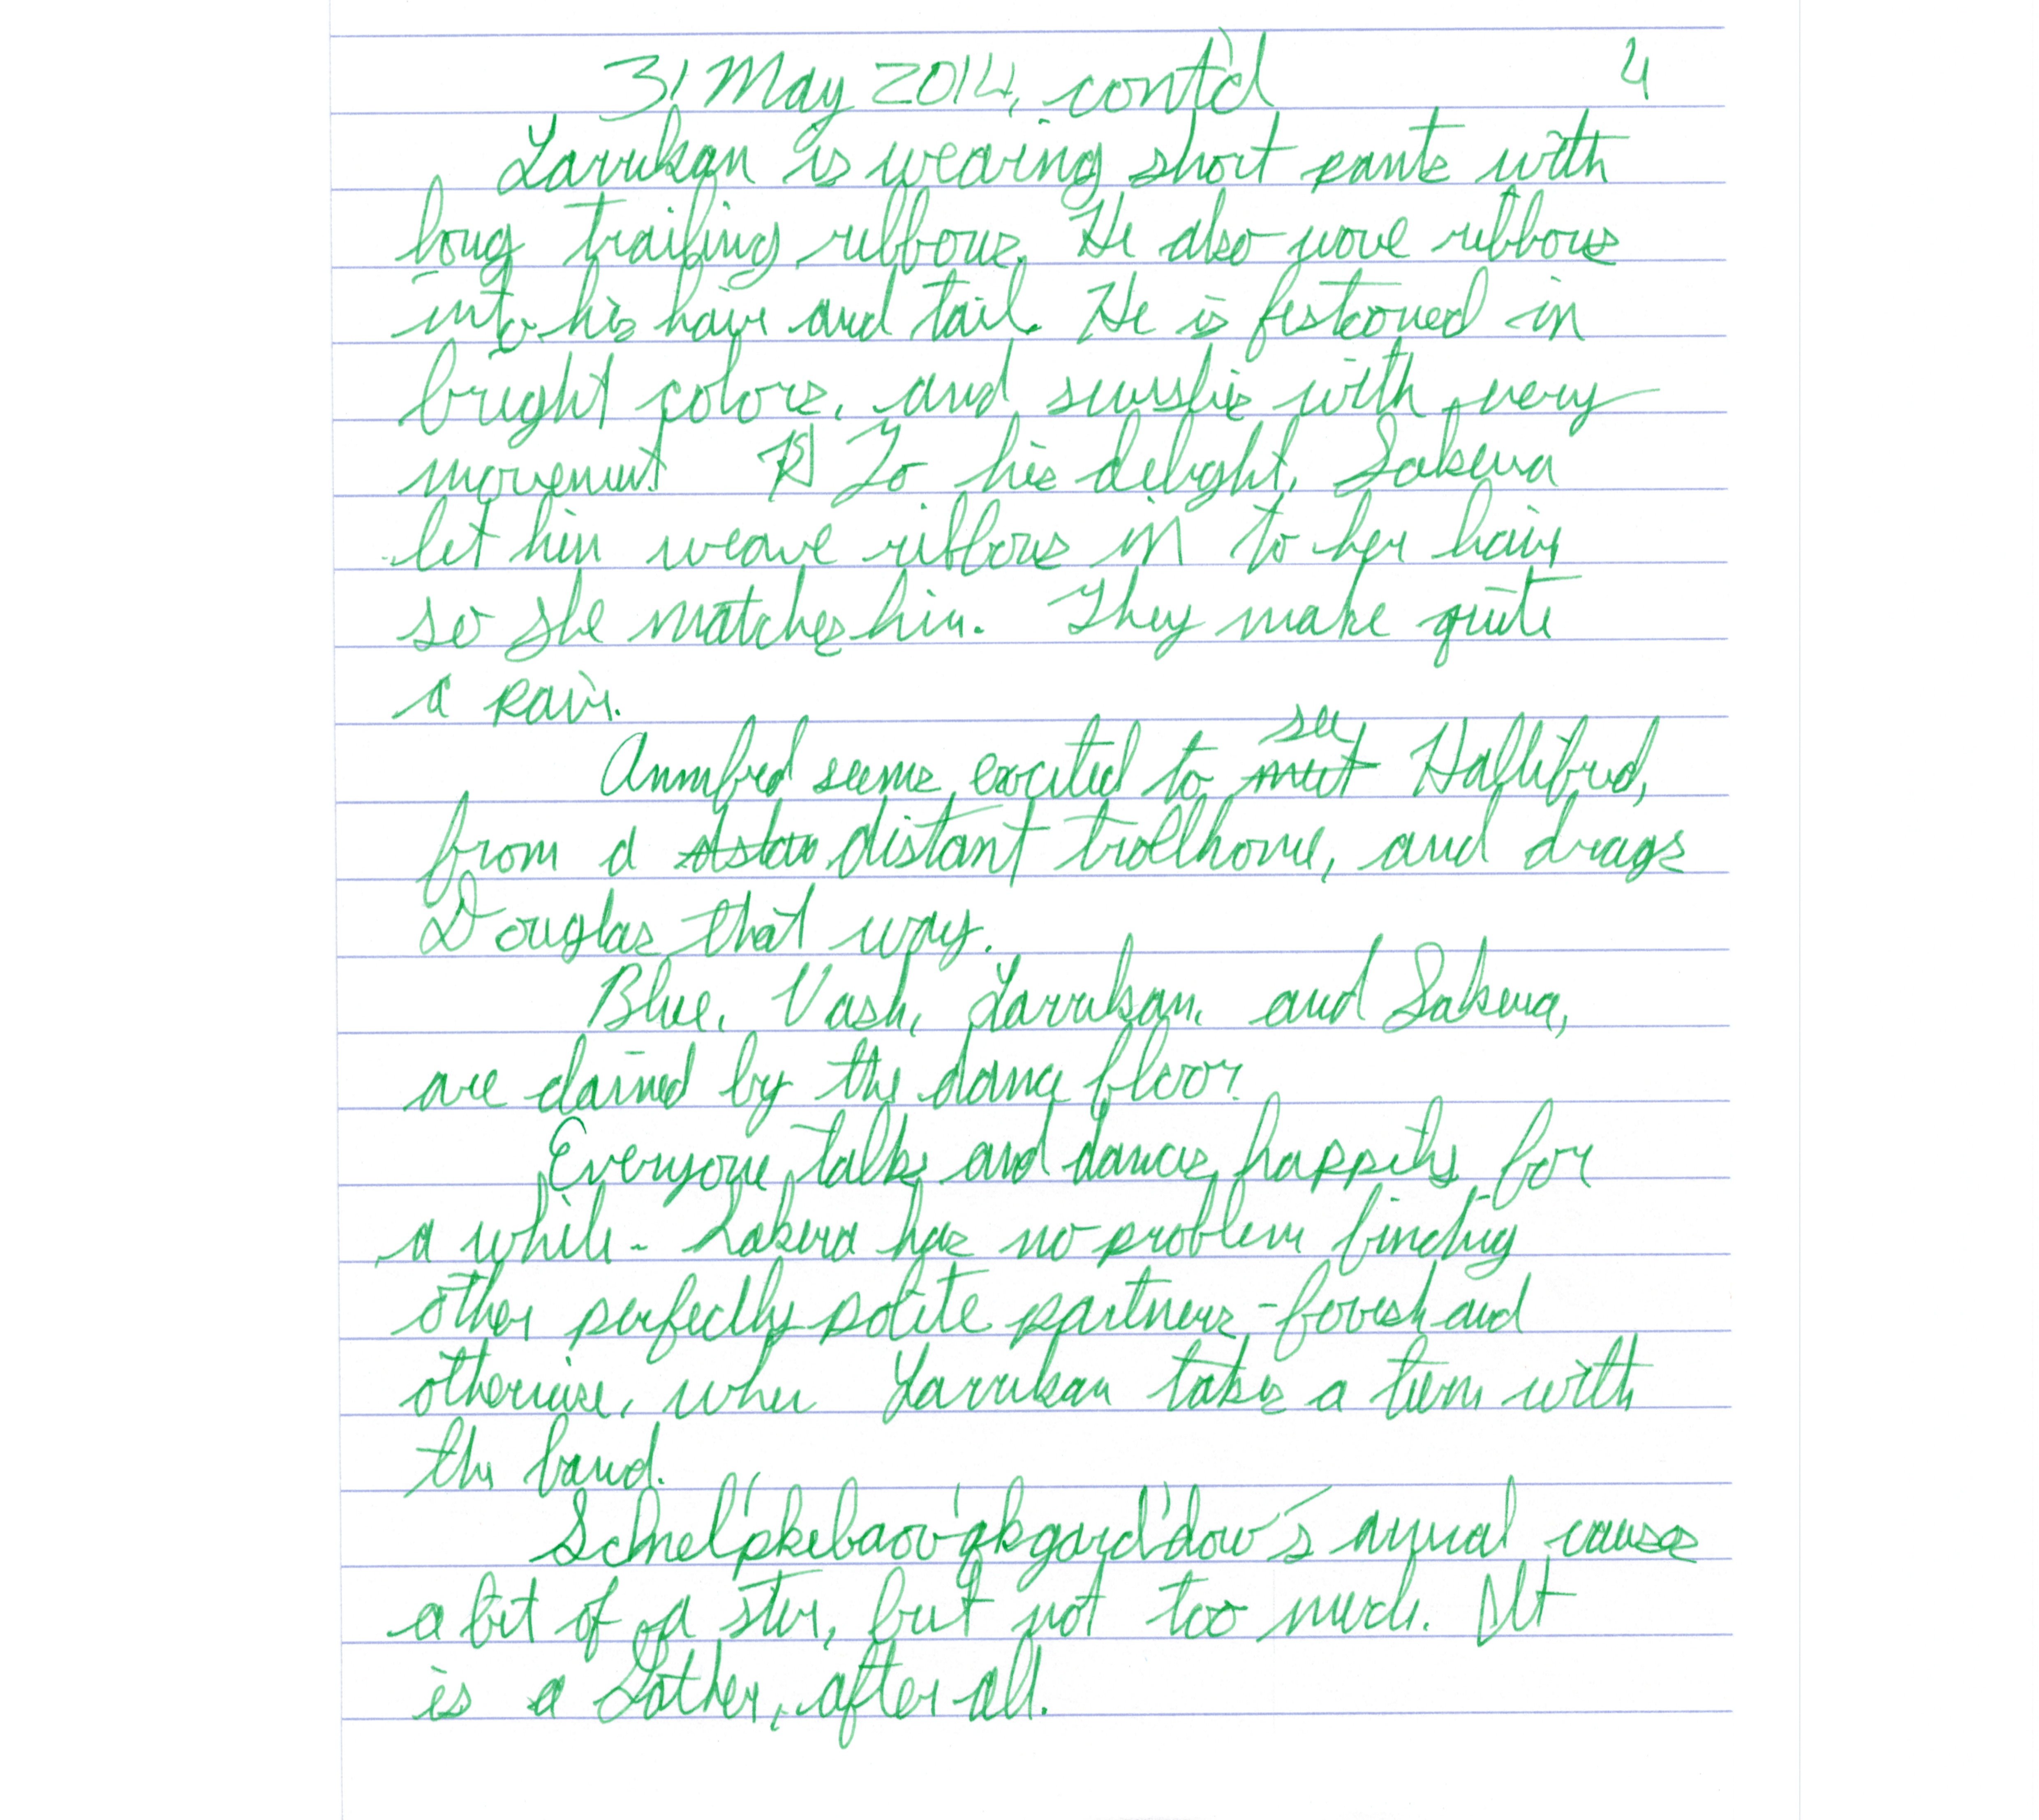 31 May 2014, cont'd 4
Larrikan is wearing short pants with
long trailing ribbons. He also wove ribbons
into his hair and tail. He is festooned in
bright colors, and swishes with every
movement. ¶ To his delight, Sakura
let him weave ribbons in to her hair,
so she matches him. They make quite
a pair.
see
Annfred seems excited to meet Hallifred,
from a distan distant trollhome, and drags
Douglas that way.
Blue, Vash, Larrikan, and Sakura,
are claimed by the dance floor.
Everyone talks and dances happily for
a while. Sakura has no problem finding
other perfectly polite partners - foresh and
otherwise, when Larrikan takes a turn with
the band.
arrival causes
a bit of a stir, but not too much. It
is a Gather, after all.